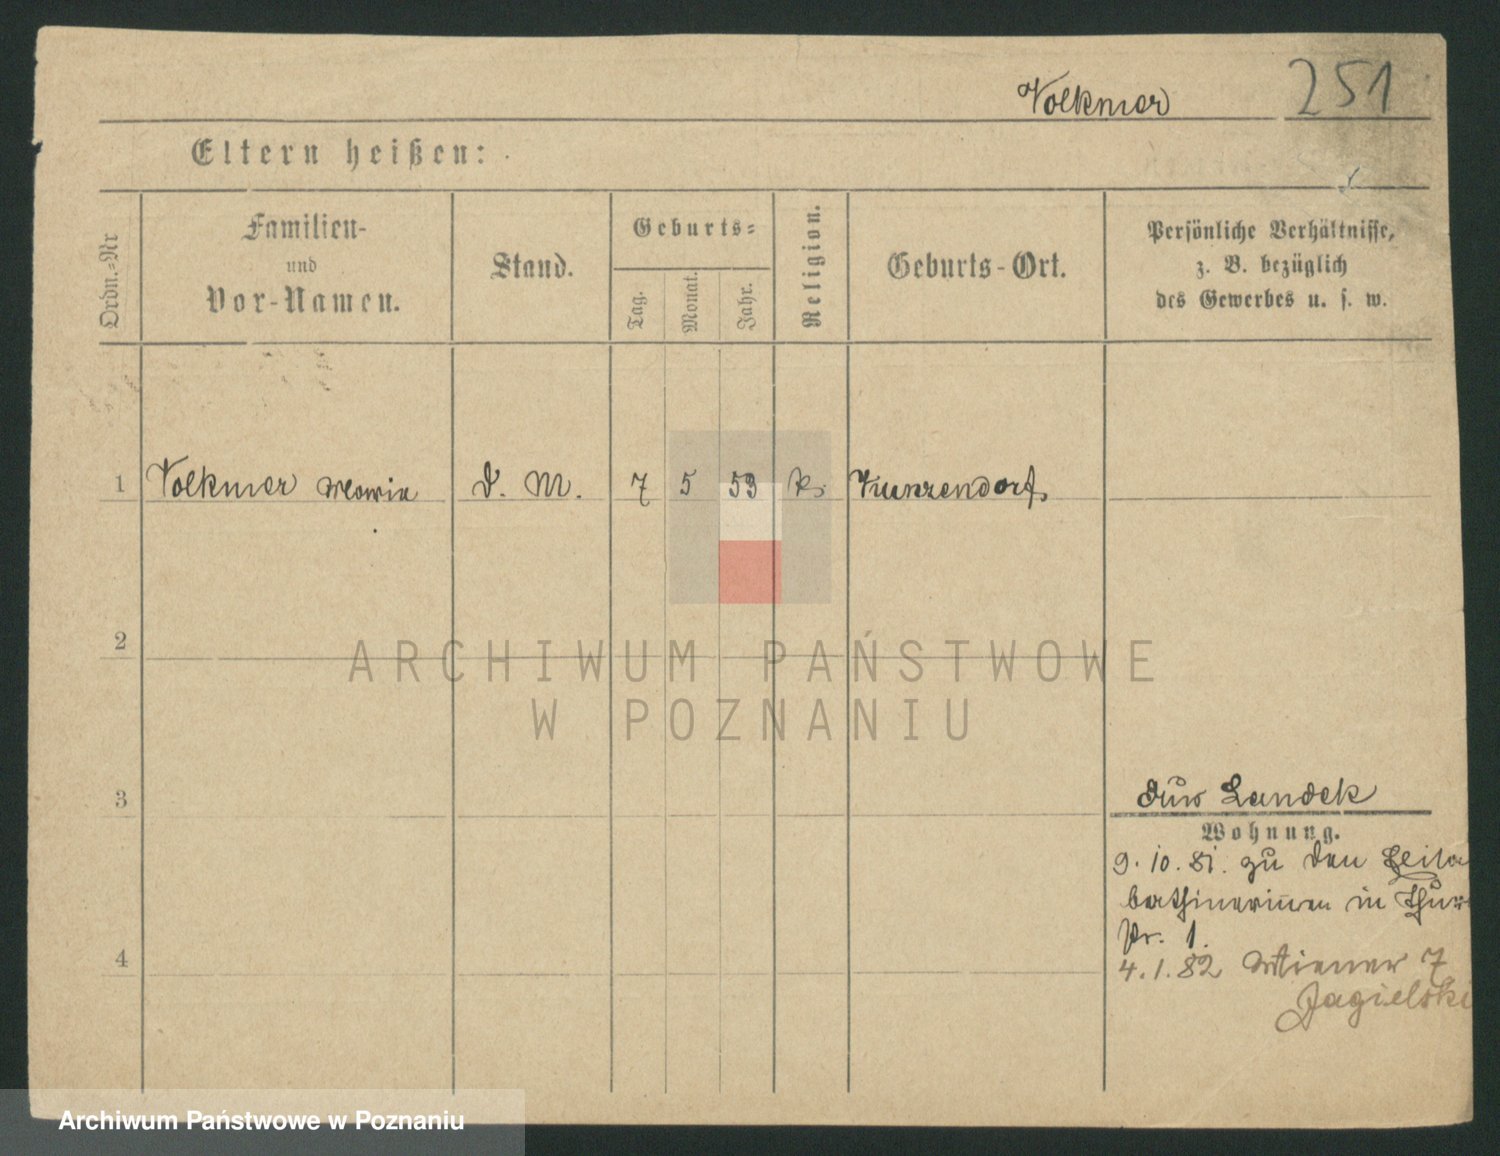 Volkmer 251
Eltern heißen:
Ordn.-Nr
Familien-
und
Vor-Namen.
Stand.
Geburts-
Tag.
Monat.
Jahr.
Religion.
Geburts-Ort.
Persönliche Verhältnisse,
z. B. bezüglich
des Gewerbes u. s. w.
1 Volkmer Maria d. M. 7 5 59 k. Kunzendorf.
2
ARCHIWUM PAŃSTWOWE
W POZNANIU
3
Landek
Wohnung.
9. 10. 81. zu den
in
Nr. 1.
4
4. 1. 82 Wiener 7
Jagielski
Archiwum Państwowe w Poznaniu